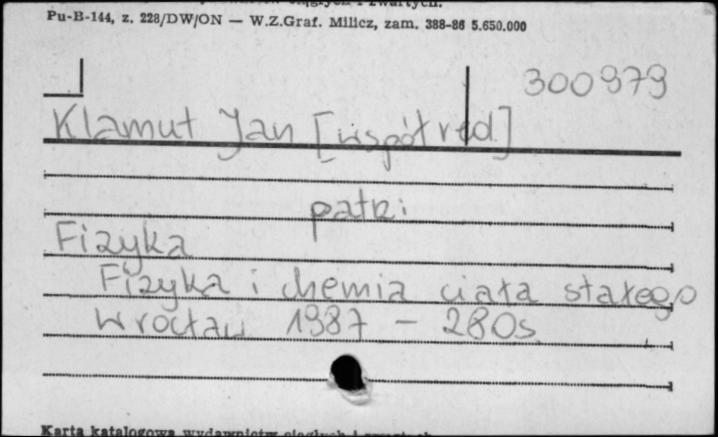 ciągłych i zwartych.
Pu-B-144, z. 228/DW/ON — W.Z.Graf. Milicz, zam. 388-86 5.650.000
300979
Klamut Jan [współred.]
patrz:
Fizyka
Fizyka i chemia ciała stałego
Wrocław 1987 – 280s.
Karta katalogowa wydawnictw ciągłych i zwartych